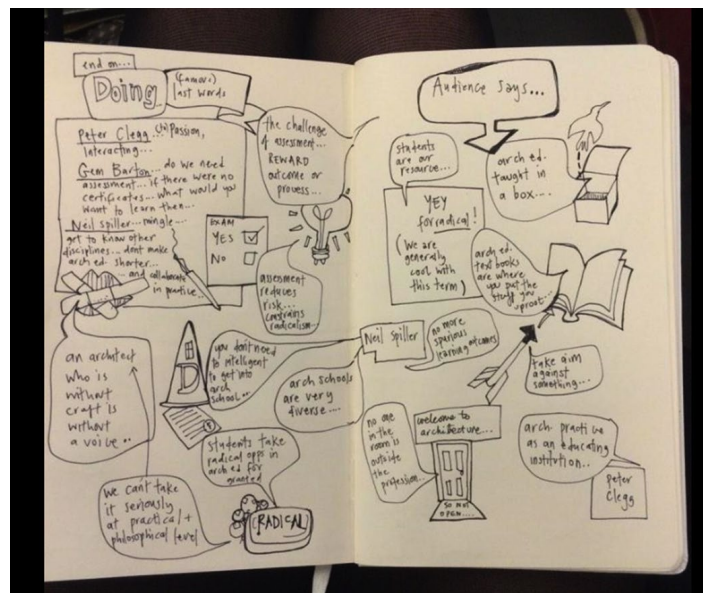 end on...
Doing
(famous)
last words
Peter Clegg... Passion,
Interacting...
Gem Barton... do we need
assessment... if there were no
certificates... what would you
want to learn then...
Neil Spiller... mingle...
get to know other
disciplines... dont make
arch ed shorter...
... and collaborate
in practice..
EXAM
YES
NO
the challenge
of assessment...
REWARD
outcome or
process...
assessment
reduces
risk...
constrains
radicalism...
an architect
who is
without
craft is
without
a voice..
D
you don't need
to intelligent
to get into
arch
school...
arch schools
are very
diverse...
students take
radical opps in
arch ed for
granted
we can't take
it seriously
at practical +
philosophical level
RADICAL
Audience says...
students
are our
resource...
arch ed.
taught in
a box...
YEY
for radical!
(We are
generally
cool with
this term)
arch ed.
text books
are where
you put the
stuff you
Neil Spiller
no more
spurious
learning outcomes
take aim
against
something...
no one
in the
room is
outside
the
profession...
welcome to
architecture...
SO NOT
OPEN....
arch practice
as an educating
institution...
Peter
Clegg